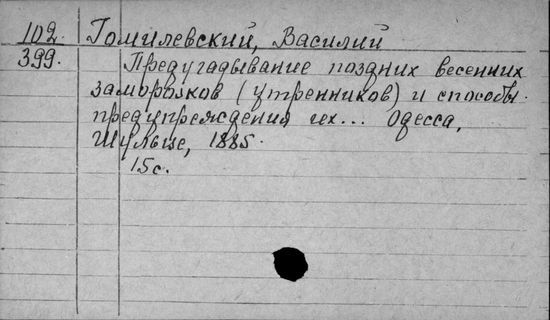 102. Гомилевский, Василий
399. Предугадывание поздних весенних
заморозков (утренников) и способы
предупреждения их... Одесса,
Шульце, 1885.
15 с.